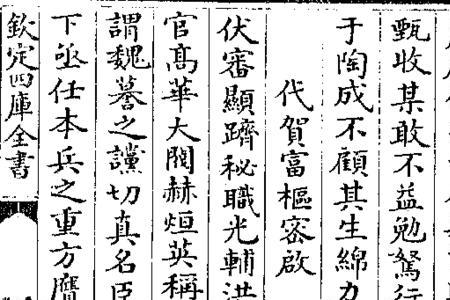 甄收某敢不益勉駑行
于陶成不顧其生綿力
代賀富樞宻啟
伏審顯躋秘職光輔洪
官髙華大閥赫烜英稱
謂魏謩之讜切真名臣
下亟任本兵之重方膺
欽定四庫全書